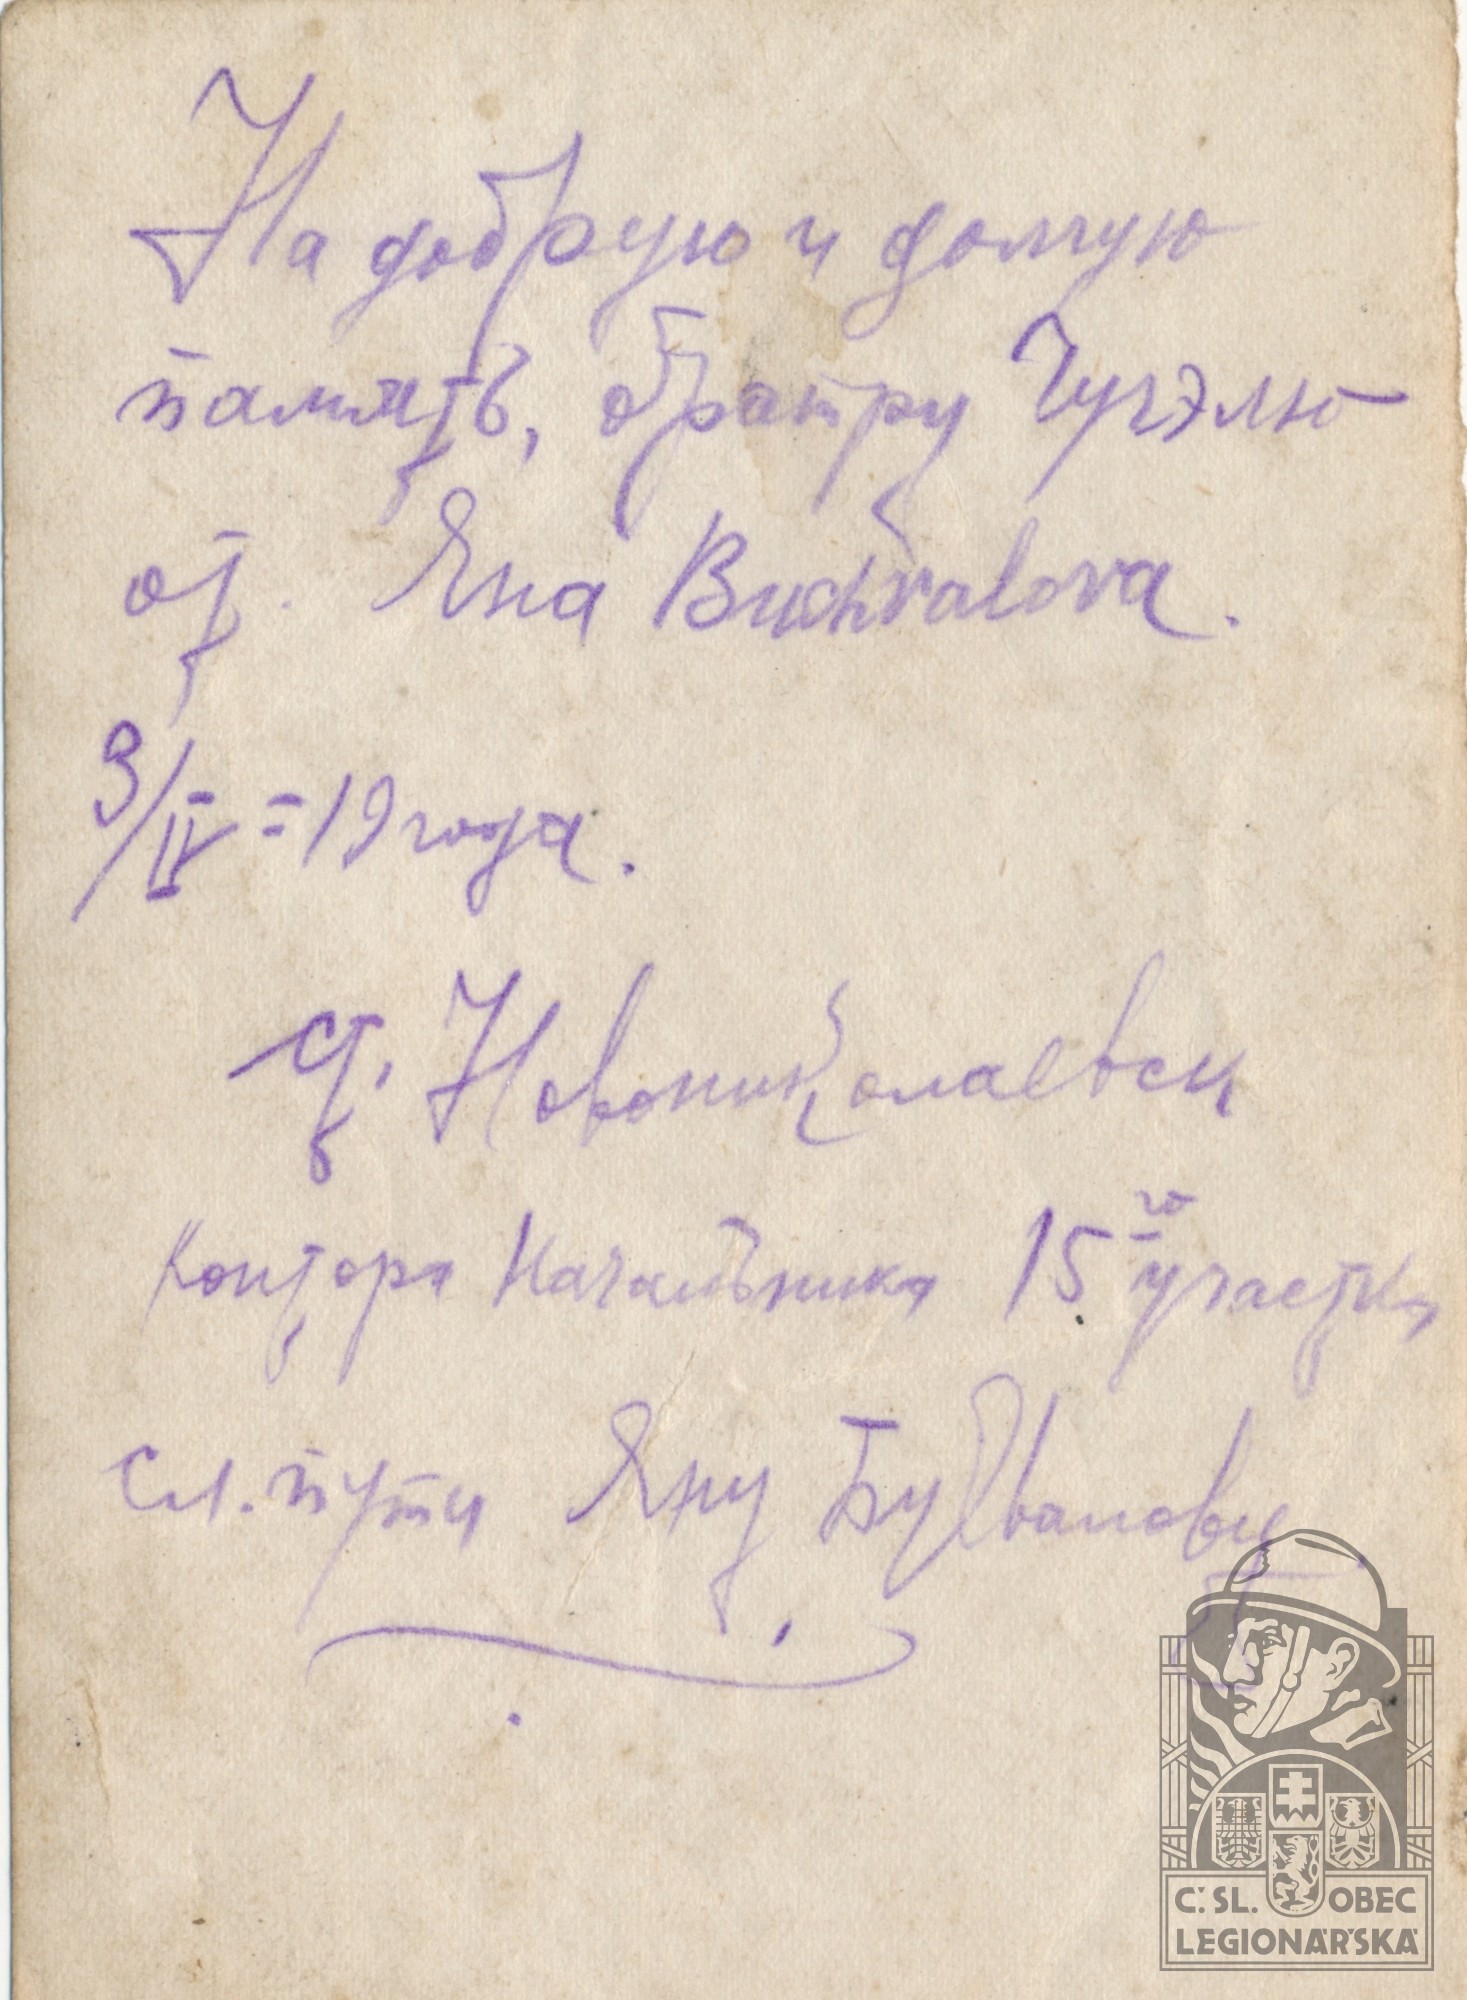 На добрую и долгую
память, братру Гугэлю
от Яна Buchvalova.
3/IV = 19 года.
ст. Новониколаевск
Контора Начальника 15го участка
сл. пути Яну Бухвалову
Č. SL. OBEC
LEGIONÁŘSKÁ